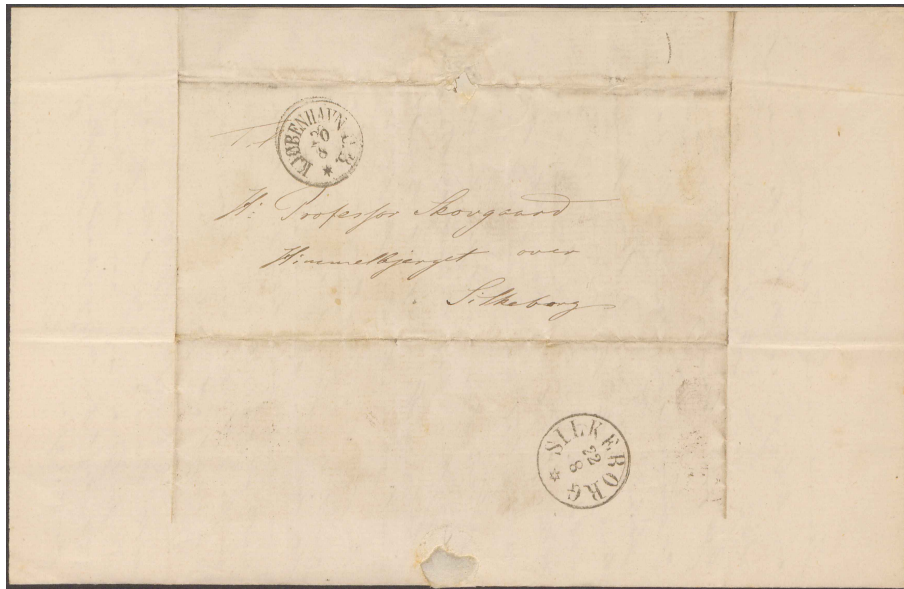 KJØBENHAVN K.B.
20
8
Hr. Professor Skovgaard
Himmelbjerget over
Silkeborg
SILKEBORG
22
8